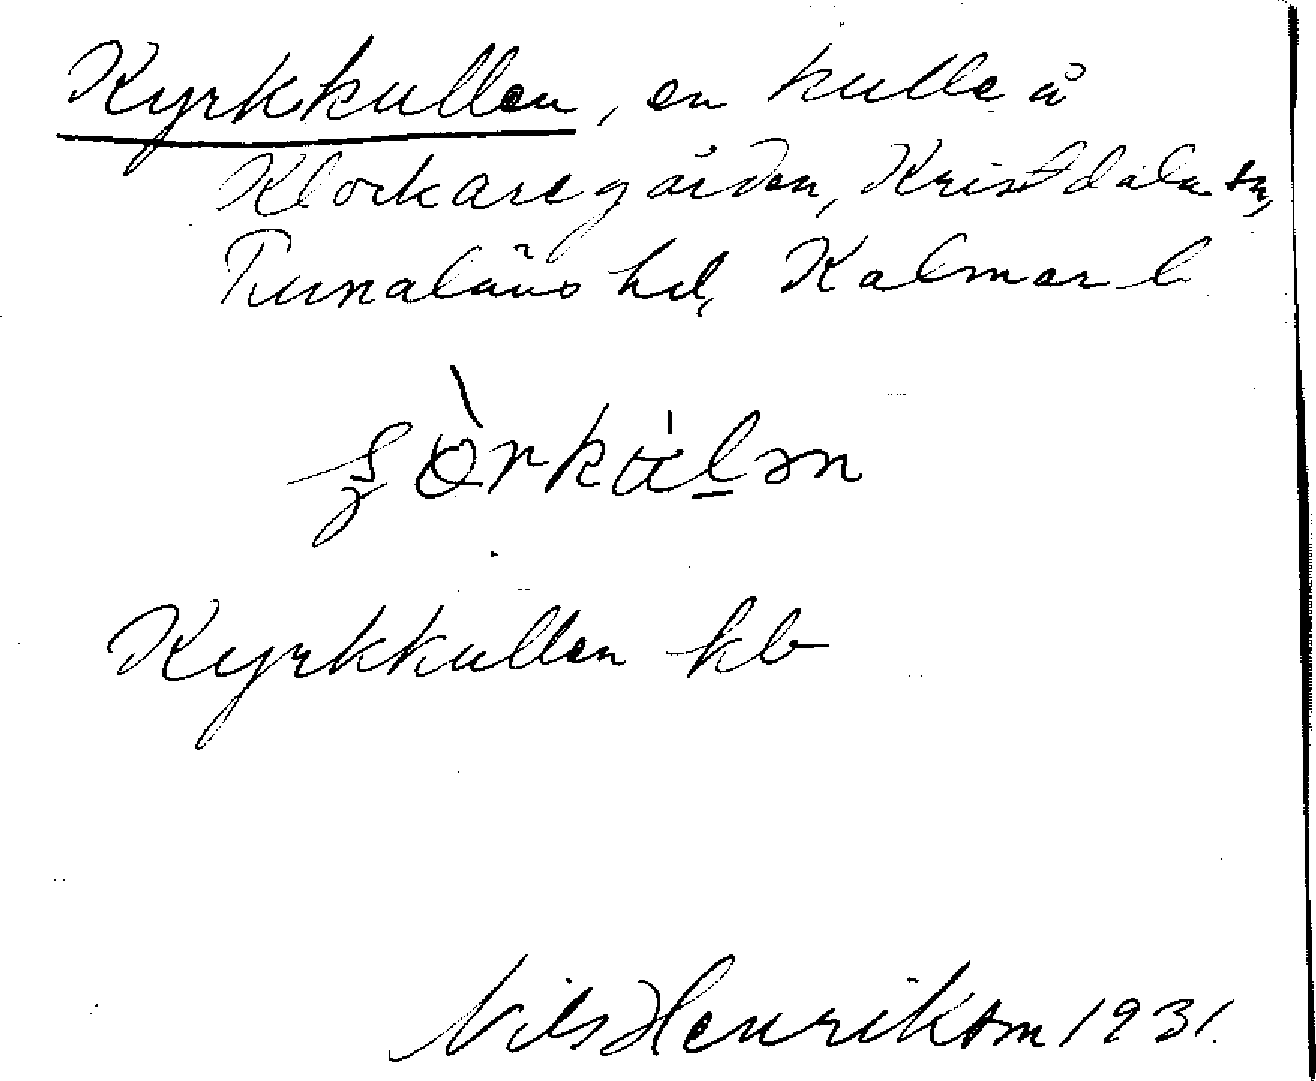 Kyrkkullen, en kulle å
Klockaregården, Kristdala sn,
Tunaläns hd, Kalmar l
Kyrkkullen kb
Nils Henrikson 1931.